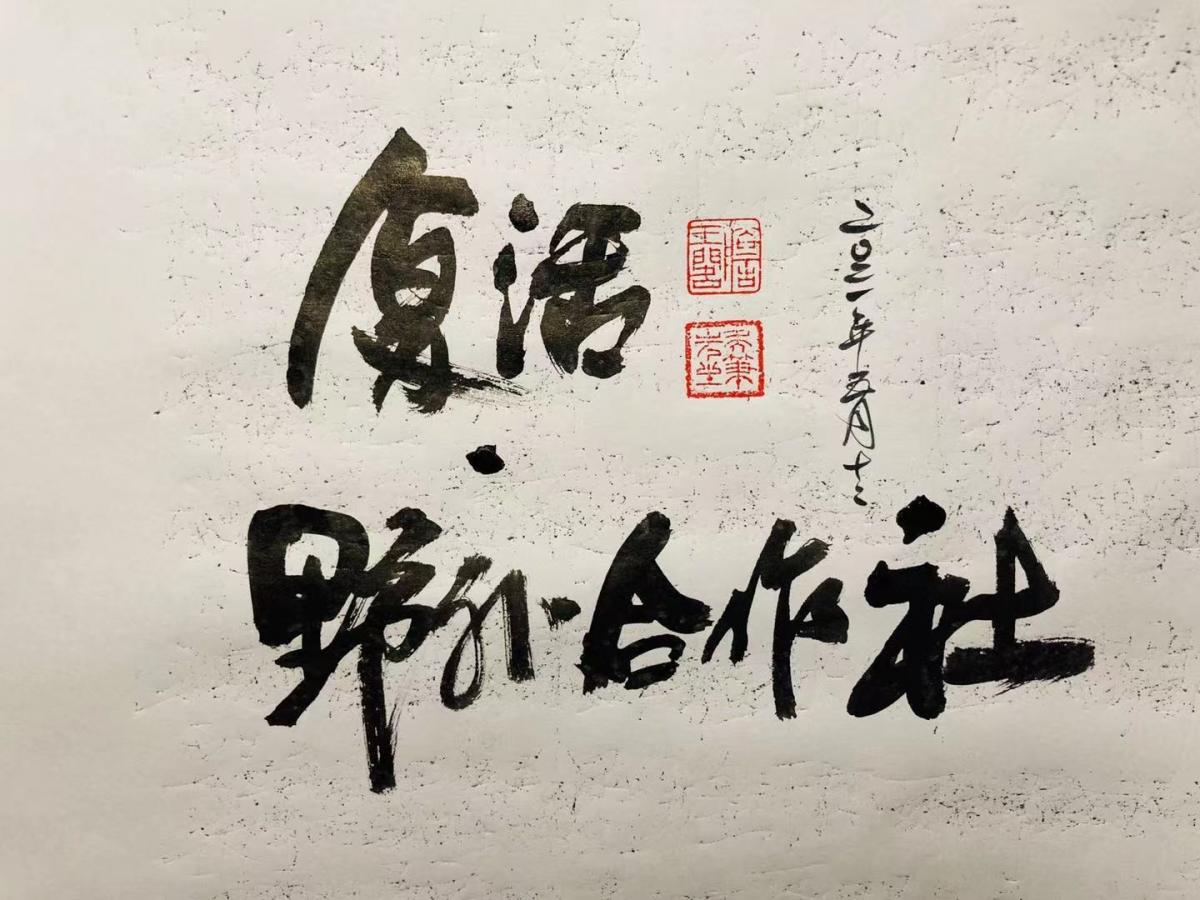 复活
·
野外合作社
二〇二一年五月十二